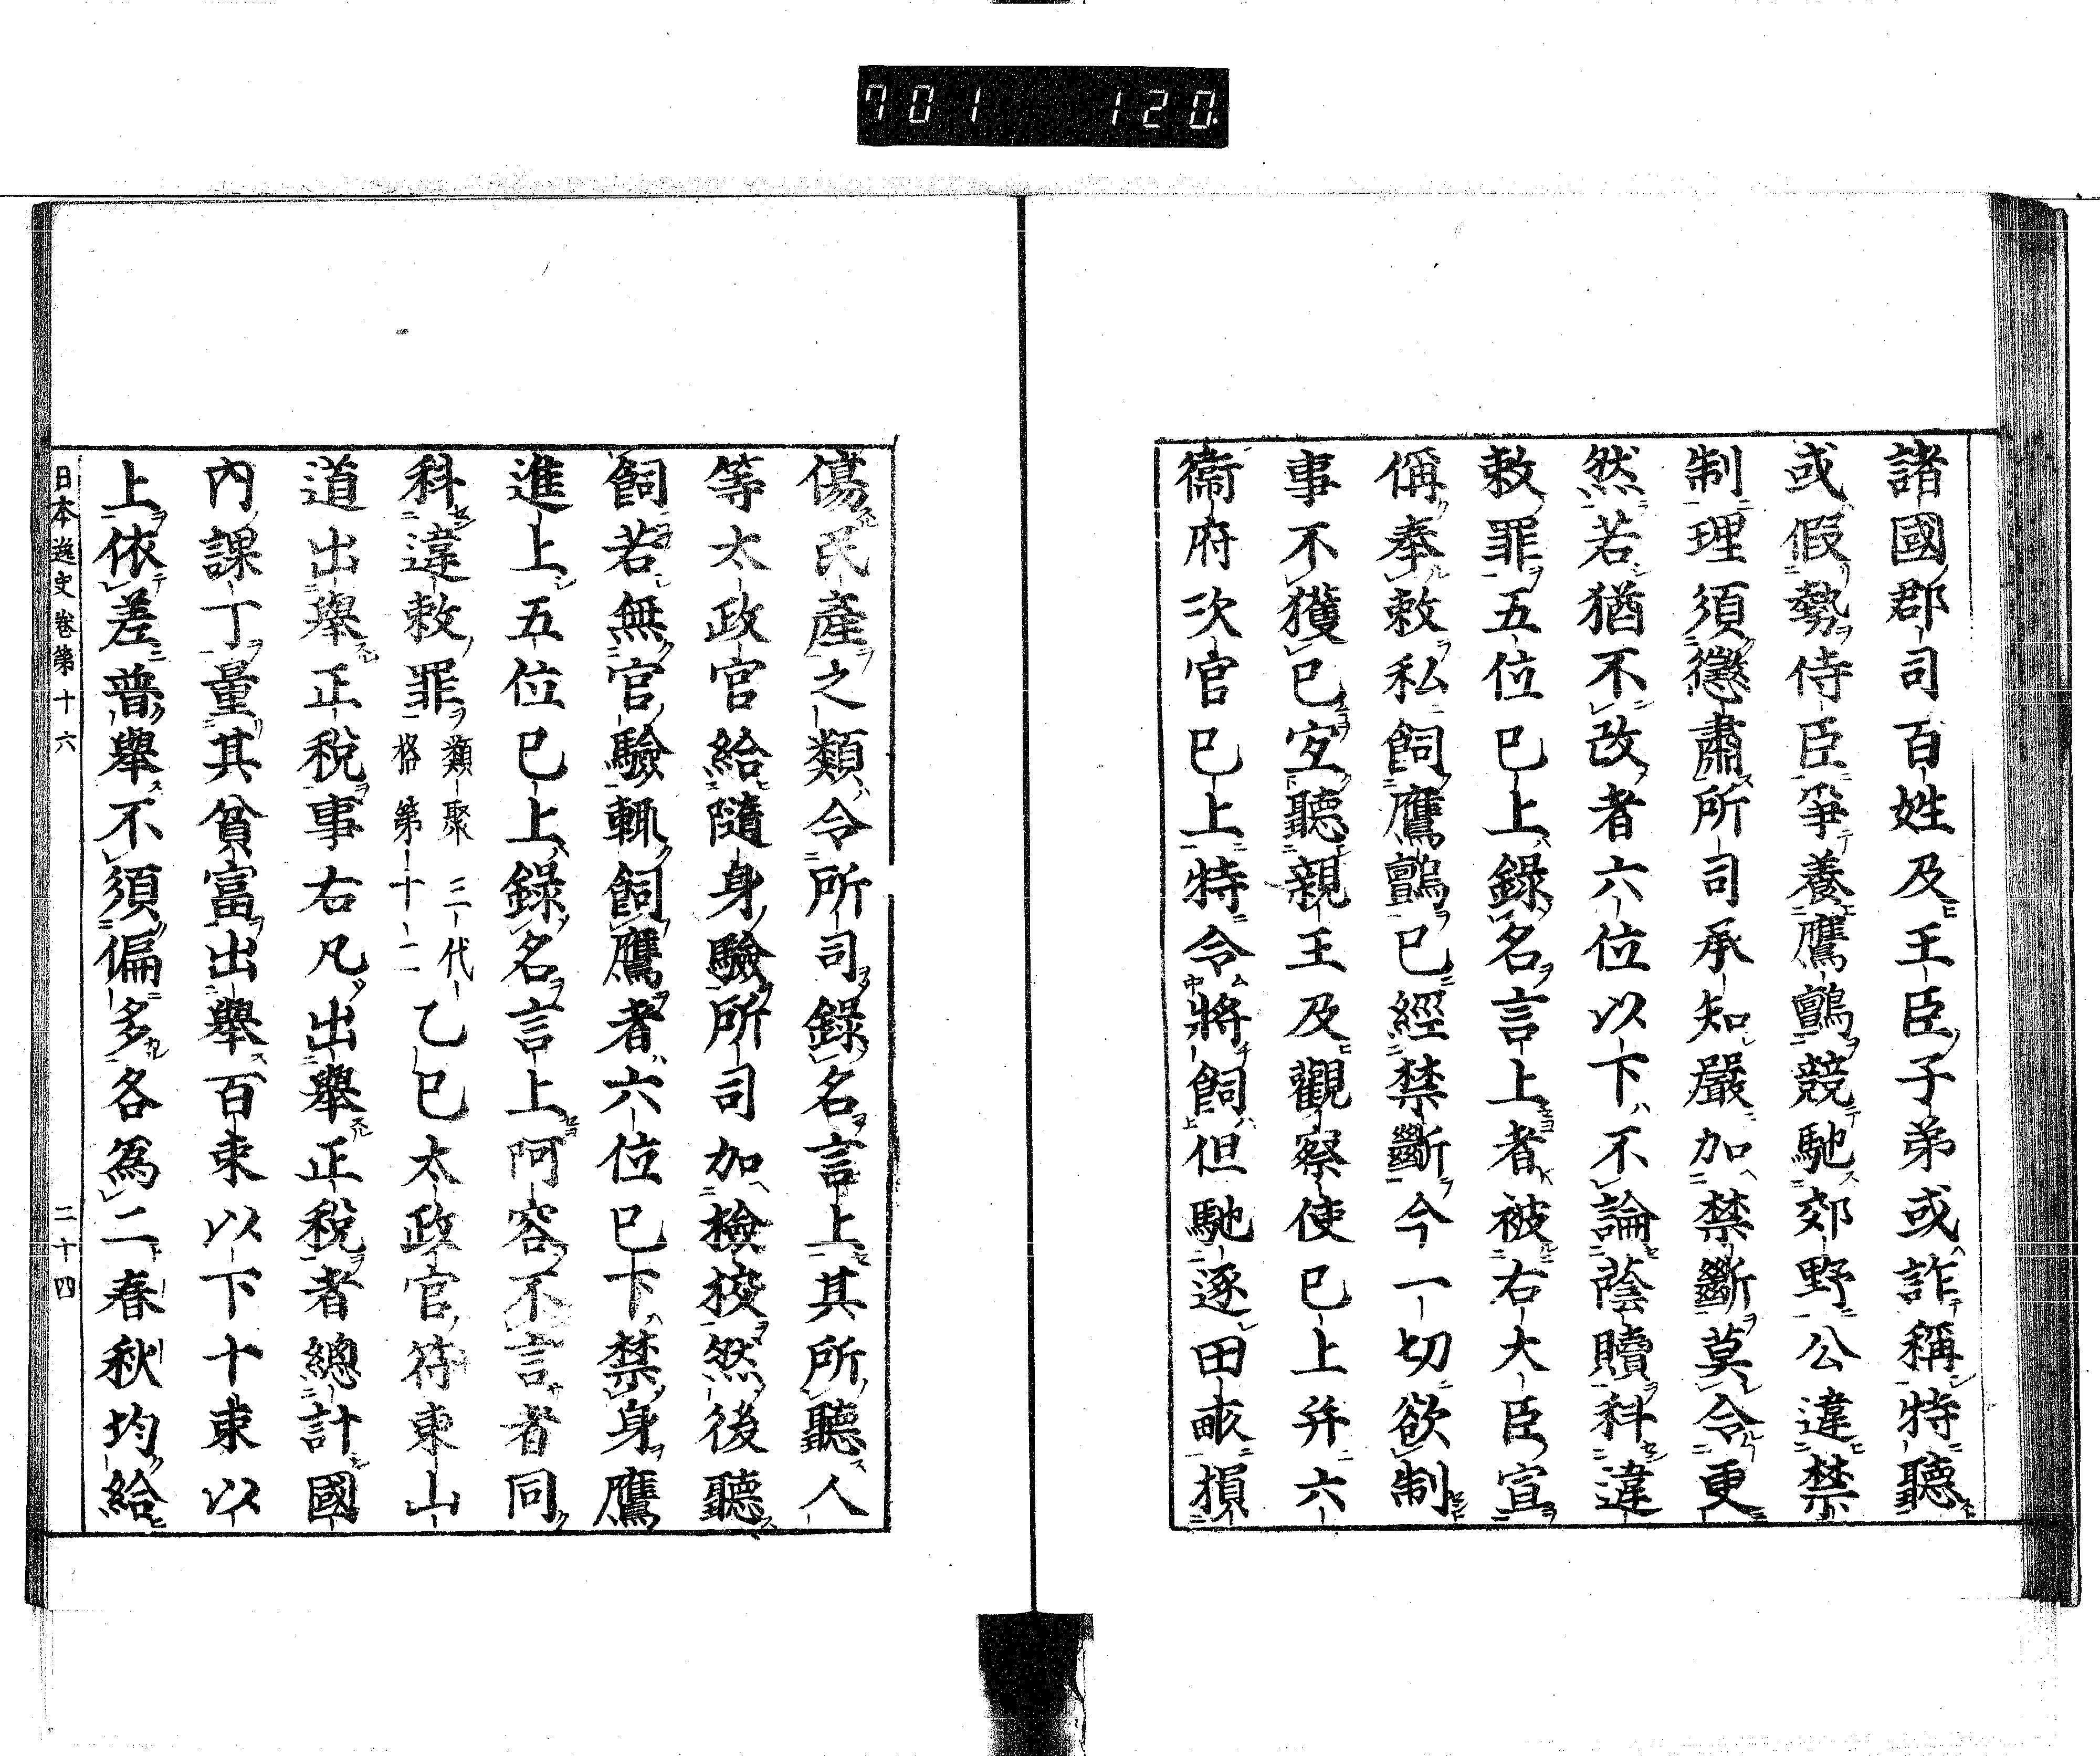 701 120
諸國郡司百姓及王臣子弟或詐稱特聽
或假勢侍臣爭養鷹鸇競馳郊野公違禁
制理須懲肅所司承知嚴加禁斷莫令更
然若猶不改者六位以下不論蔭贖科違
敕罪五位已上錄名言上者被右大臣宣
偁奉敕私飼鷹鸇已經禁斷今一切欲制
事不獲已宜聽親王及觀察使已上并六
衞府次官已上特令將飼但馳逐田畝損
傷民產之類令所司錄名言上其所聽人
等太政官給隨身驗所司加檢挍然後聽
飼若無官驗輒飼鷹者六位已下禁身鷹
進上五位已上錄名言上阿容不言者同
科違敕罪類聚三代格第十二乙巳太政官符東山
道出舉正稅事右凡出舉正稅者總計國
內課丁量其貧富出舉百束以下十束以
上依差普舉不須偏多各爲二春秋均給
日本逸史卷第十六 二十四